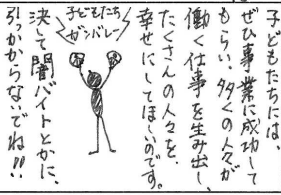 子どもたちには、
ぜひ事業に成功して
もらい、多くの人々が
働く仕事を生み出し、
たくさんの人々を、
幸せにしてほしいのです。
子どもたち
ガンバレー
決して闇バイトとかに、
引っかからないでね!!